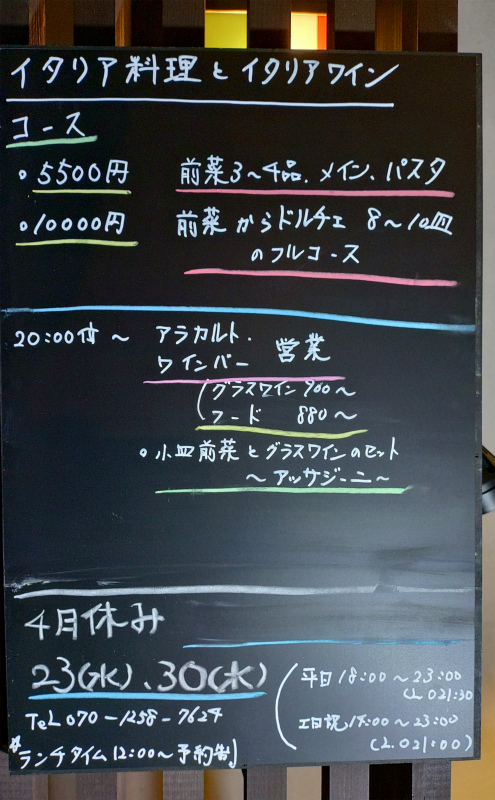 イタリア料理とイタリアワイン
コース
・5500円 前菜3〜4品、メイン、パスタ
・10000円 前菜からドルチェ 8〜10皿
のフルコース
20:00付〜 アラカルト・
ワインバー 営業
(グラスワイン 900〜
フード 880〜
・小皿前菜とグラスワインのセット
〜アッサジーニ〜
4月休み
23(水)、30(水)
平日 18:00〜23:00
(L.O21:30
TEL 070-1258-7624
土日祝 17:00〜23:00
(L.O21:00)
※ランチタイム12:00〜予約制